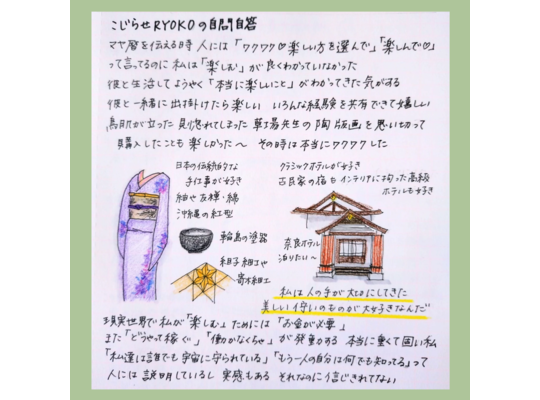 こじらせRYOKOの自問自答
マヤ暦を伝える時 人には「ワクワク♡楽しい方を選んで」「楽しんで♡」
って言ってるのに 私は「楽しむ」が良くわかっていなかった
彼と生活してようやく「本当に楽しいこと」がわかってきた気がする
彼と一緒に出掛けたら楽しい いろんな経験を共有できて嬉しい
鳥肌が立った 見惚れてしまった 先生の陶版画を思い切って
購入したことも楽しかった〜 その時は本当にワクワクした
日本の伝統的な
手仕事が好き
紬や友禅・綿
沖縄の紅型
輪島の塗器
組子細工や
寄木細工
クラシックホテルが好き
古民家の宿も インテリアに拘った高級
ホテルも好き
奈良ホテル
泊りたい〜
私は人の手が大切にしてきた
美しい佇いのものが大好きなんだ
現実世界で私が「楽しむ」ためには「お金が必要」
また「どうやって稼ぐ」「働かなくちゃ」が発動する 本当に重くて固い私
「私達は誰でも宇宙に守られている」「もう一人の自分は何でも知ってる」って
人には説明しているし 実感もある それなのに信じきれてない